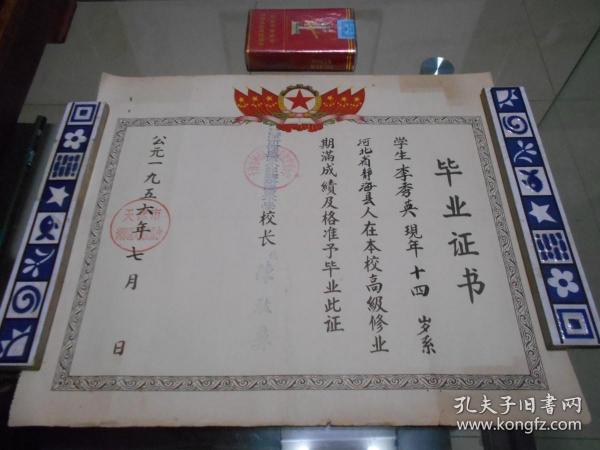 毕业证书
学生李秀英现年十四岁系
河北省静海县人在本校高級修业
期滿成績及格准予毕业此证
校长
公元一九五六年七月 日
孔夫子旧书网
www.kongfz.com